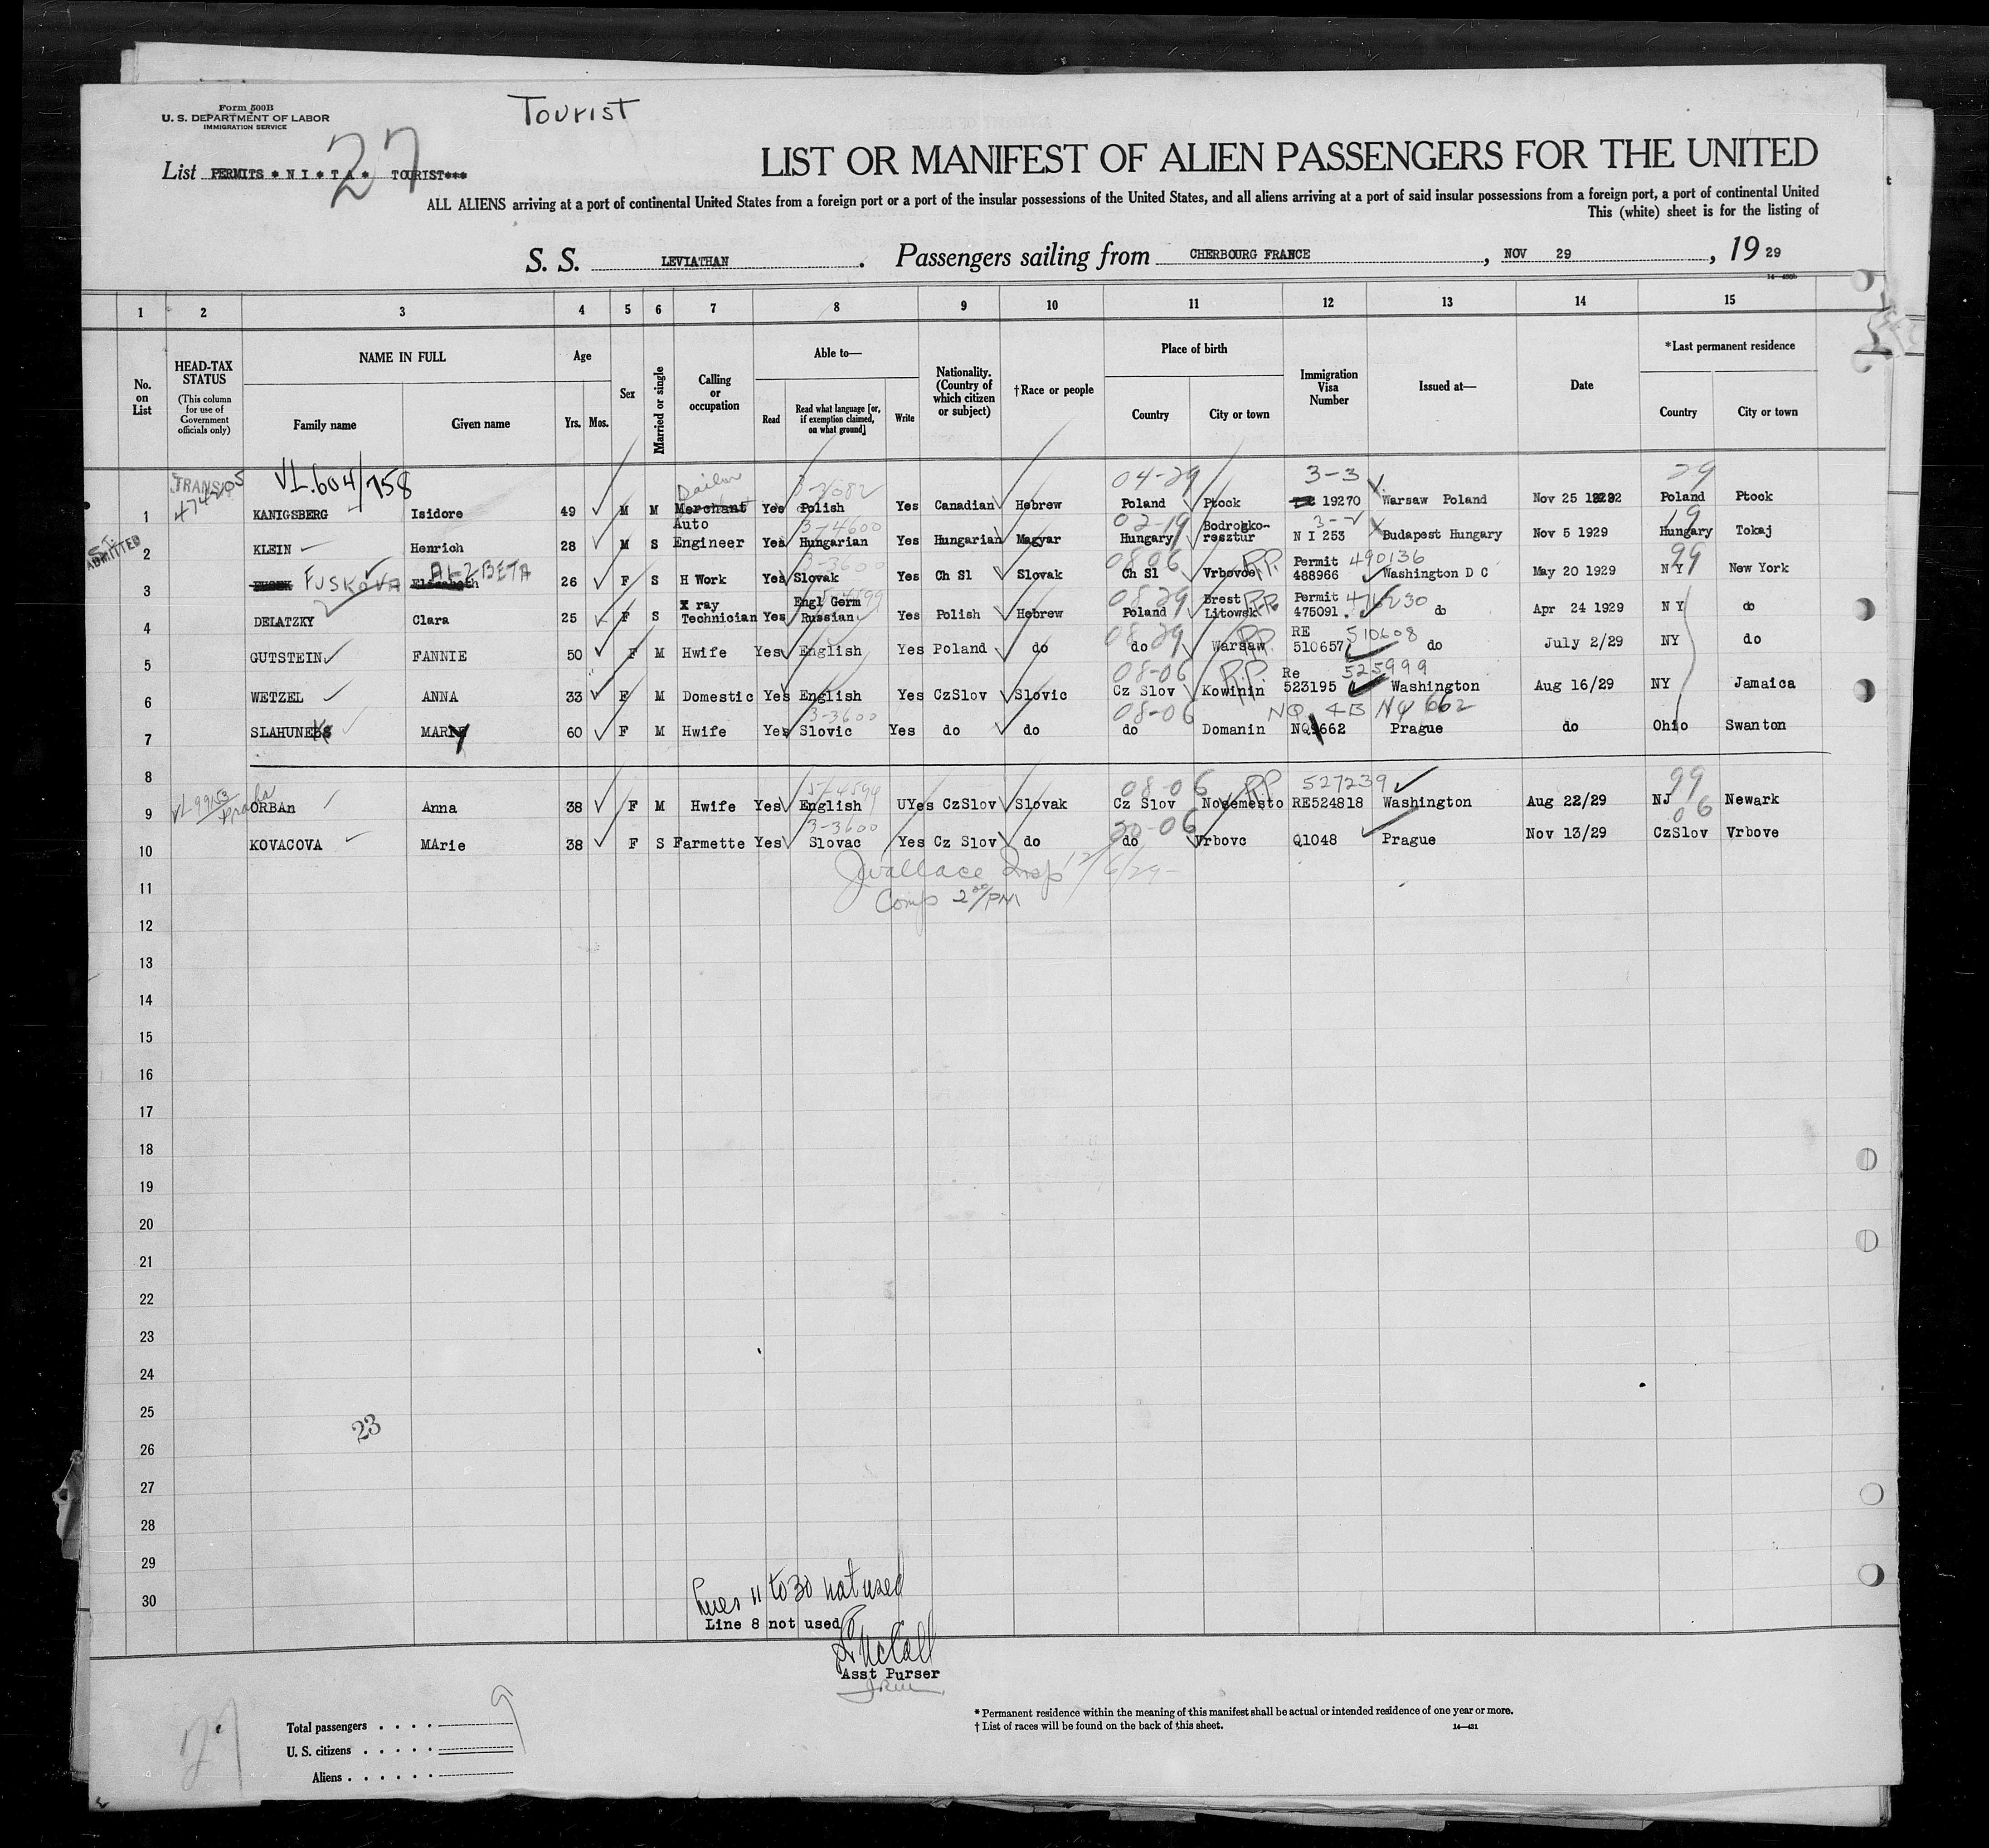 Form 500B
U. S. DEPARTMENT OF LABOR
IMMIGRATION SERVICE
Tourist
27
List PERMITS * N I * T A * TOURIST***
LIST OR MANIFEST OF ALIEN PASSENGERS FOR THE UNITED
ALL ALIENS arriving at a port of continental United States from a foreign port or a port of the insular possessions of the United States, and all aliens arriving at a port of said insular possessions from a foreign port, a port of continental United
This (white) sheet is for the listing of
S. S. LEVIATHAN. Passengers sailing from CHERBOURG FRANCE, NOV 29, 19 29
1 2 3 4 5 6 7 8 9 10 11 12 13 14 15
No. on List
HEAD-TAX STATUS (This column for use of Government officials only)
NAME IN FULL Family name Given name
Age Yrs. Mos.
Sex
Married or single
Calling or occupation
Able to— Read Read what language [or, if exemption claimed, on what ground] Write
Nationality. (Country of which citizen or subject)
†Race or people
Place of birth Country City or town
Immigration Visa Number
Issued at—
Date
*Last permanent residence Country City or town
TRANSIT VL.604/758 04-29 3-3 29
1 KANIGSBERG Isidore 49 M M Merchant Yes Polish Yes Canadian Hebrew Poland Ptock 19270 Warsaw Poland Nov 25 Poland Ptock
3-4600 02-19 19
ADMITTED 2 KLEIN Henrich 28 M S Auto Engineer Yes Hungarian Yes Hungarian Magyar Hungary Bodrogko-resztur N I 253 Budapest Hungary Nov 5 1929 Hungary Tokaj
3-3600 08-06 P.P. 490136 99
3 FUSKOVA ALZBETA Elizabeth 26 F S H Work Yes Slovak Yes Ch Sl Slovak Ch Sl Vrbovce Permit 488966 Washington D C May 20 1929 N Y New York
08-29 P.P. 476230
4 DELATZKY Clara 25 F S X ray Technician Yes Engl Germ Russian Yes Polish Hebrew Poland Brest Litowsk Permit 475091. do Apr 24 1929 N Y do
08-29 P.P. 510608
5 GUTSTEIN FANNIE 50 F M Hwife Yes English Yes Poland do do Warsaw RE 510657 do July 2/29 NY do
08-06 P.P. 525999
6 WETZEL ANNA 33 F M Domestic Yes English Yes CzSlov Slovic Cz Slov Kowinin Re 523195 Washington Aug 16/29 NY Jamaica
3-3600 08-06 NQ 4B NQ 662
7 MARY 60 F M Hwife Yes Slovic Yes do do do Domanin 662 Prague do Ohio Swanton
8
08-06 P.P. 527239 99
9 ORBAn Anna 38 F M Hwife Yes English UYes CzSlov Slovak Cz Slov Nosemesto RE524818 Washington Aug 22/29 NJ Newark
3-3600 20-06 06
10 KOVACOVA MArie 38 F S Farmette Yes Slovac Yes Cz Slov do do Vrbovc Q1048 Prague Nov 13/29 CzSlov Vrbove
JWallace Insp 12/6/29
Comp 2 00/PM
11
12
13
14
15
16
17
18
19
20
21
22
23
24
25
23
26
27
28
29
30
Lines 11 to 30 not used
Line 8 not used
McCall
Asst Purser
27
Total passengers . . . . 9
U. S. citizens . . . . .
Aliens . . . . . .
* Permanent residence within the meaning of this manifest shall be actual or intended residence of one year or more.
† List of races will be found on the back of this sheet.
14—431